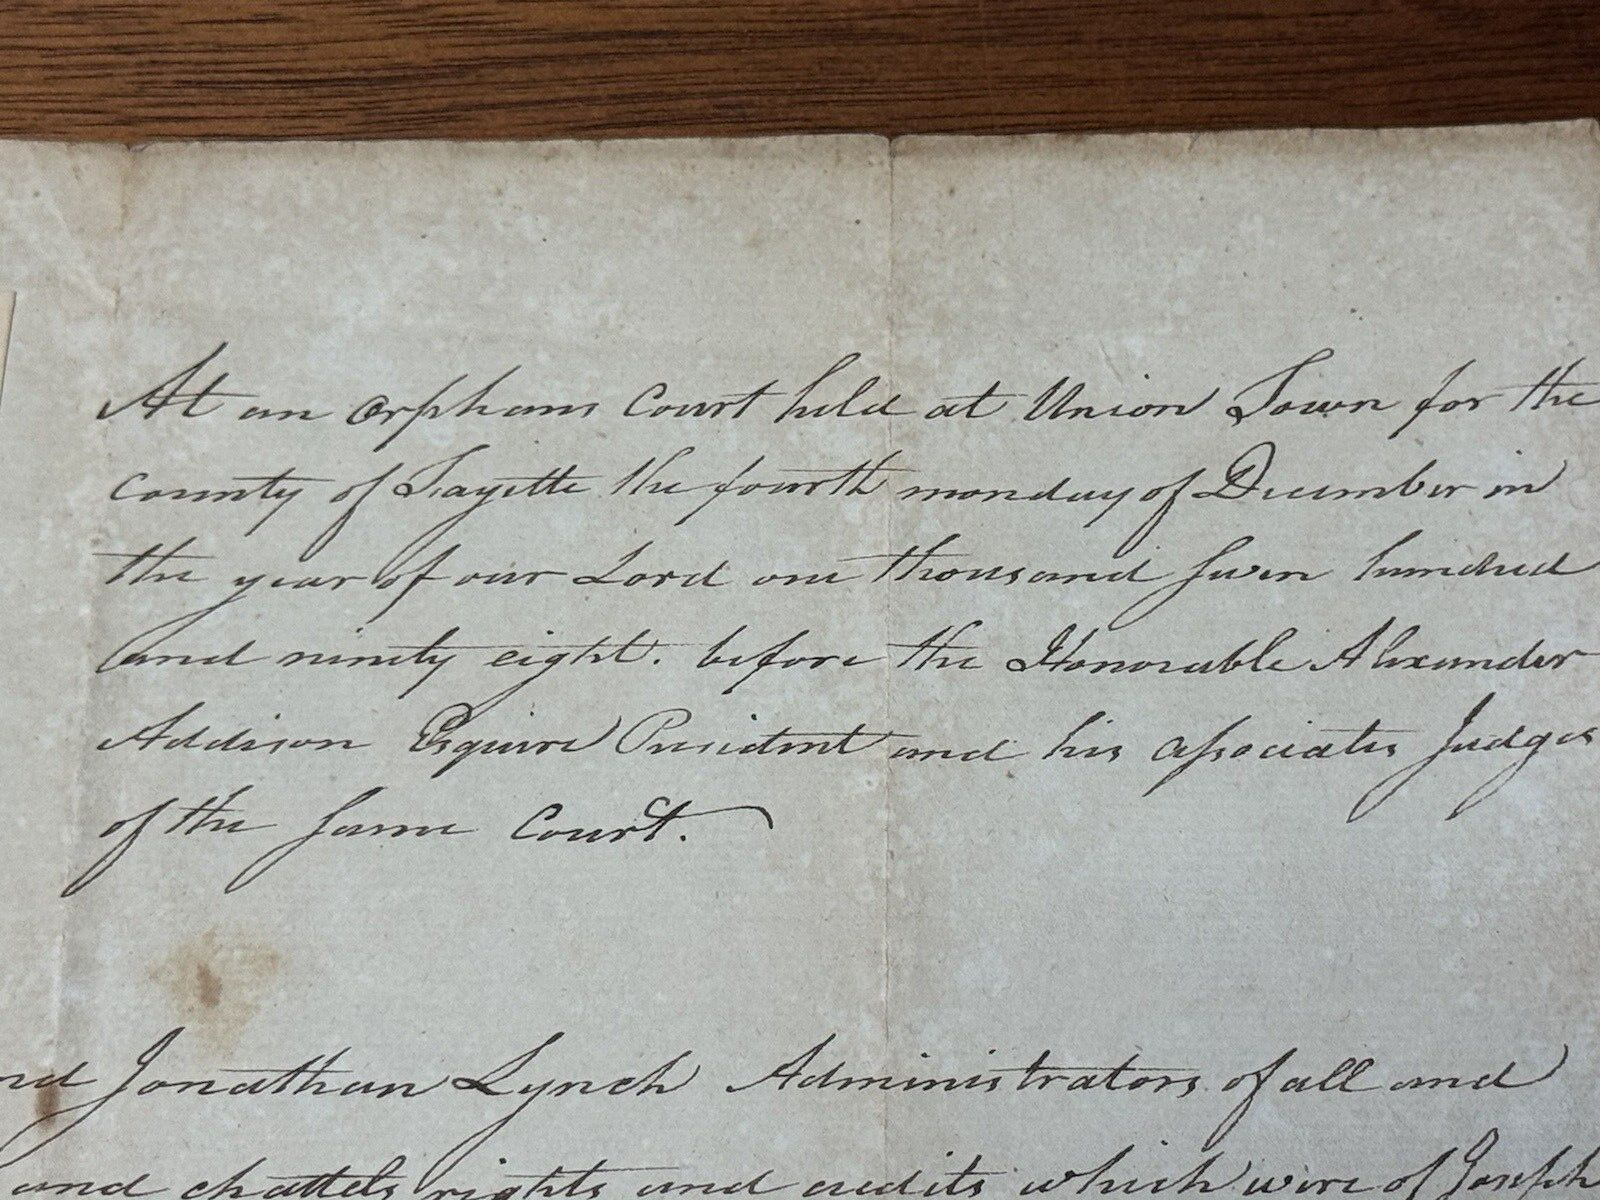 At an orphans Court held at Union Town for the
county of Fayette the fourth monday of December in
the year of our Lord one thousand seven hundred
and ninety eight. before the Honorable Alexander
Addison Esquire President and his associates Judges
of the same Court.
Jonathan Lynch Administrators of all and
and chattels rights and credits which were of Joseph